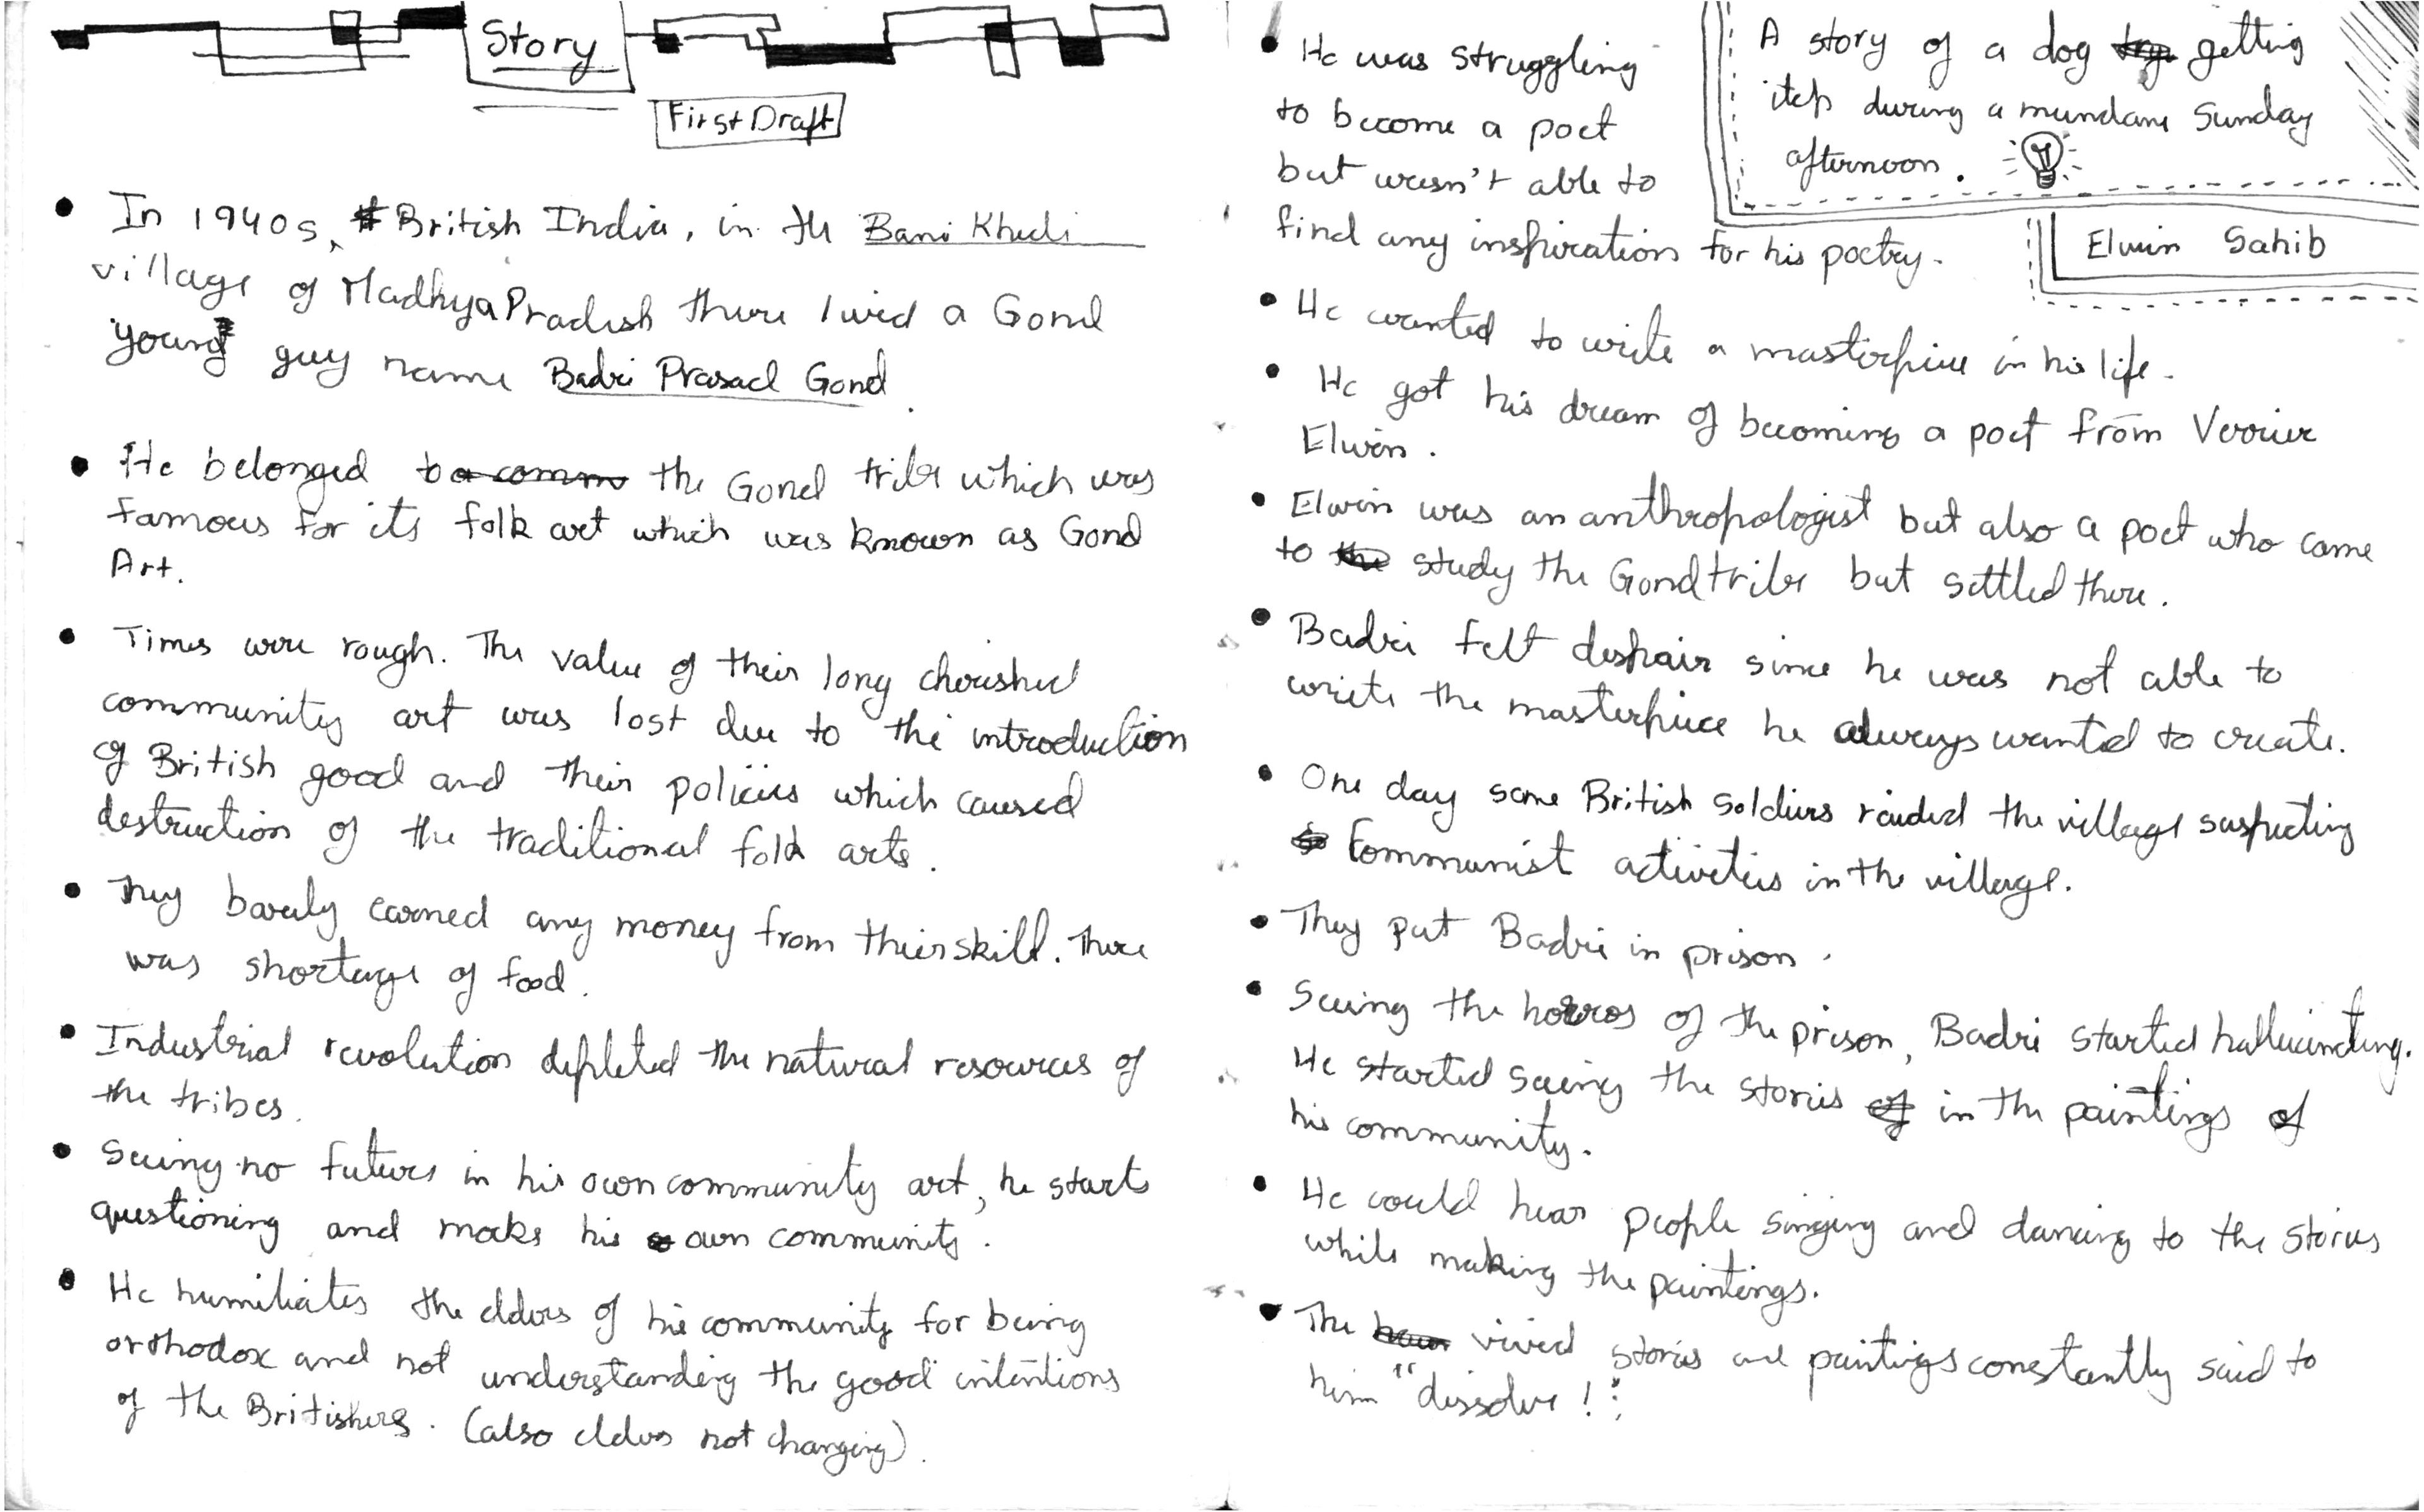 Story
First Draft
In 1940s, British India, in the Bani Khedi
village of Madhya Pradesh there lived a Gond
young guy name Badri Prasad Gond.
He belonged to a comm the Gond tribe which was
famous for its folk art which was known as Gond
Art.
Times were rough. The value of their long cherished
community art was lost due to the introduction
of British good and their policies which caused
destruction of the traditional folk arts.
They barely earned any money from their skill. There
was shortage of food.
Industrial revolution depleted the natural resources of
the tribes.
Seeing no future in his own community art, he starts
questioning and mocks his own community.
He humiliates the elders of his community for being
orthodox and not understanding the good intentions
of the Britishers. (also elders not changing).
He was struggling
to become a poet
but wasn't able to
find any inspiration for his poetry.
He wanted to write a masterpiece in his life.
He got his dream of becoming a poet from Verrier
Elwin.
Elwin was an anthropologist but also a poet who came
to the study the Gond tribe but settled there.
Badri felt despair since he was not able to
write the masterpiece he always wanted to create.
One day some British soldiers raided the village suspecting
Communist activities in the village.
They put Badri in prison.
Seeing the horros of the prison, Badri started hallucinating.
He started seeing the stories of in the paintings of
his community.
He could hear people singing and dancing to the stories
while making the paintings.
The vivid stories and paintings constantly said to
him "dissolve!"
A story of a dog getting
itch during a mundane Sunday
afternoon.
Elwin Sahib